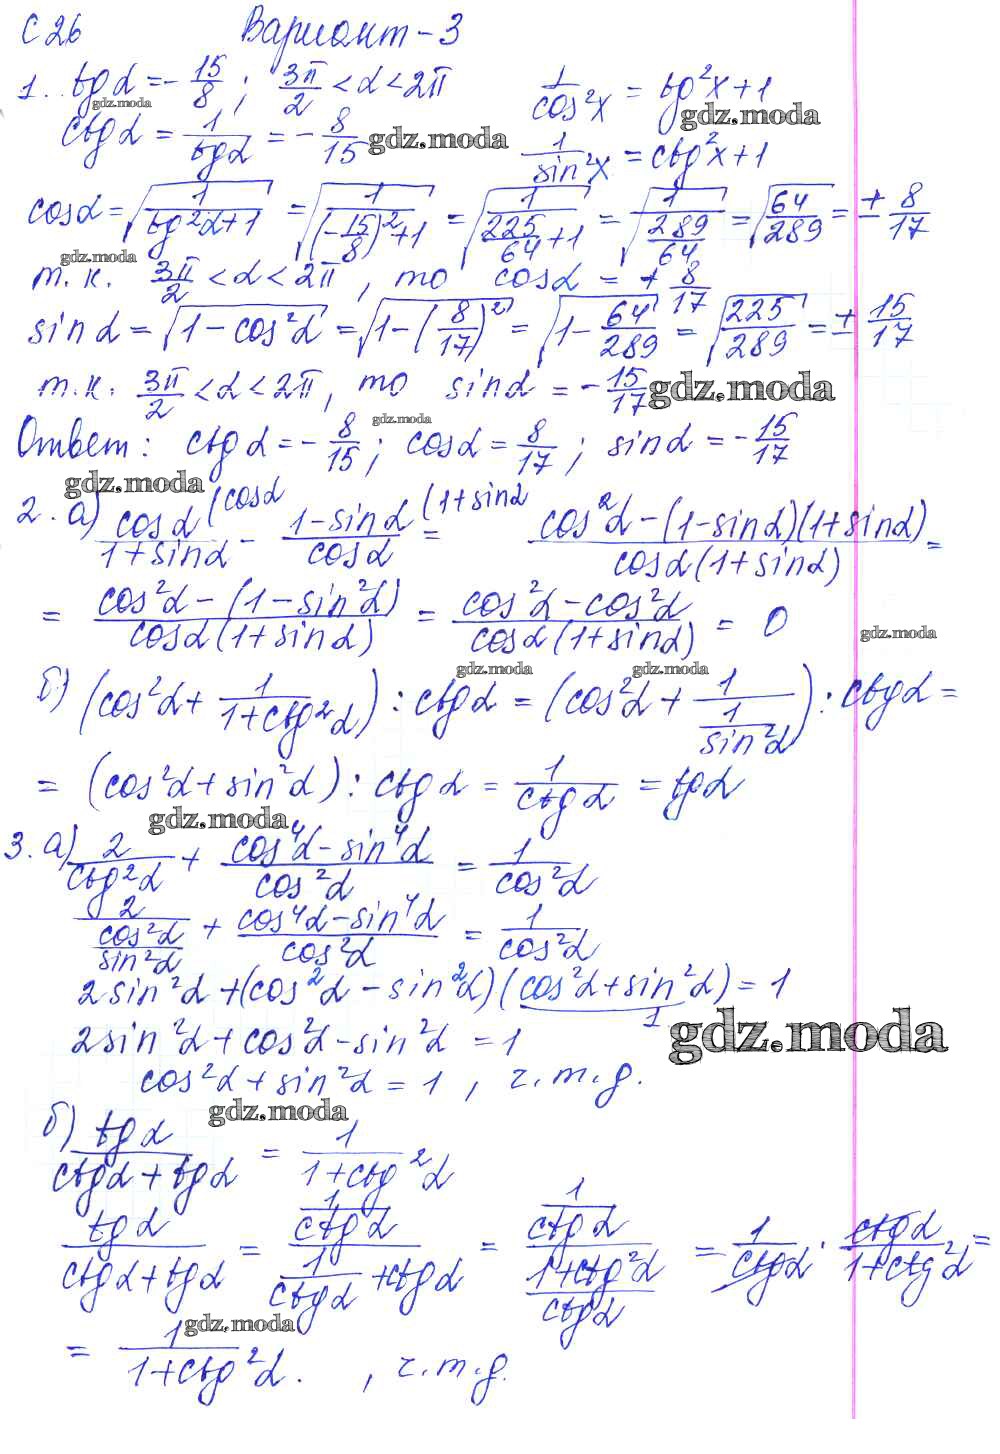 С 26 Вариант - 3
1. tg α = - 15/8 ; 3π/2 < α < 2π 1/cos²x = tg²x + 1
gdz.moda gdz.moda
ctg α = 1/tg α = - 8/15 gdz.moda 1/sin²x = ctg²x + 1
cos α = √(1/(tg²α + 1)) = √(1/((-15/8)² + 1)) = √(1/(225/64 + 1)) = √(1/(289/64)) = √(64/289) = ± 8/17
gdz.moda
т.к. 3π/2 < α < 2π , то cos α = + 8/17
sin α = √(1 - cos²α) = √(1 - (8/17)²) = √(1 - 64/289) = √(225/289) = ± 15/17
т.к. 3π/2 < α < 2π, то sin α = - 15/17 gdz.moda
gdz.moda
Ответ: ctg α = - 8/15 ; cos α = 8/17 ; sin α = - 15/17
gdz.moda
2. а) cos α/(1 + sin α) (cos α - (1 - sin α)/cos α (1 + sin α = (cos²α - (1 - sin α)(1 + sin α))/(cos α (1 + sin α)) =
= (cos²α - (1 - sin²α))/(cos α (1 + sin α)) = (cos²α - cos²α)/(cos α (1 + sin α)) = 0 gdz.moda
gdz.moda gdz.moda
б) (cos²α + 1/(1 + ctg²α)) : ctg α = (cos²α + 1/(1/sin²α)) : ctg α =
= (cos²α + sin²α) : ctg α = 1/ctg α = tg α
gdz.moda
3. а) 2/ctg²α + (cos⁴α - sin⁴α)/cos²α = 1/cos²α
2/(cos²α/sin²α) + (cos⁴α - sin⁴α)/cos²α = 1/cos²α
2 sin²α + (cos²α - sin²α)(cos²α + sin²α) = 1
1 gdz.moda
2 sin²α + cos²α - sin²α = 1
cos²α + sin²α = 1 , ч.т.д.
gdz.moda
б) tg α/(ctg α + tg α) = 1/(1 + ctg²α)
tg α/(ctg α + tg α) = (1/ctg α)/(1/ctg α + ctg α) = (1/ctg α)/((1 + ctg²α)/ctg α) = 1/ctg α · ctg α/(1 + ctg²α) =
gdz.moda
= 1/(1 + ctg²α) . , ч.т.д.